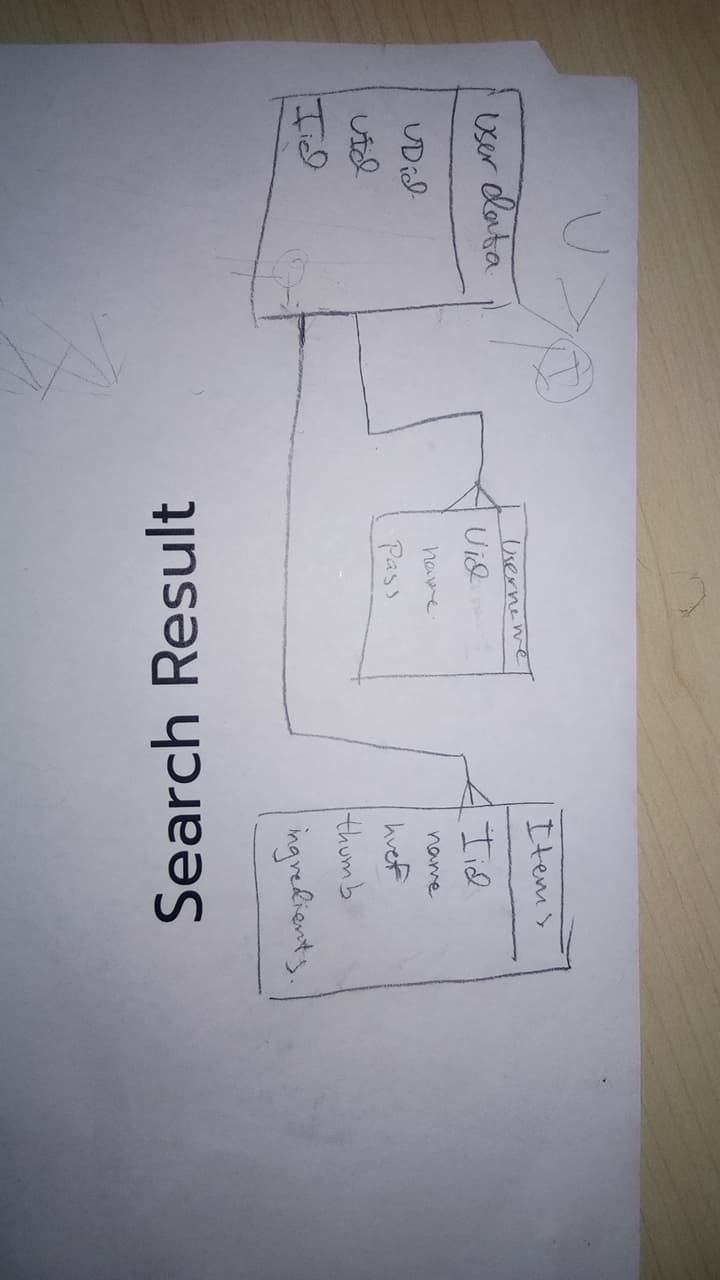 User data
UDid
UId
Iid
Username
Uid
name
Pass
Items
Iid
name
href
thumb
ingredients.
Search Result